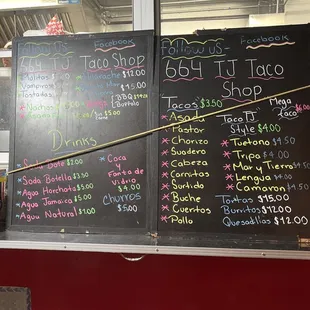 Follow us - Facebook
664 TJ Taco Shop
Mulitas
$12.00
Vampiros
$15.00
Tostadas
Nachos
Drinks
Soda Lata $2.00
Soda Botella $3.50
Agua Horchata $5.00
Agua Jamaica $5.00
Agua Natural $1.00
Coca y
Fanta de
Vidrio
$4.00
Churros
$5.00
Follow us - Facebook
664 TJ Taco
Shop
Tacos $3.50
Asada
Pastor
Chorizo
Suadero
Cabeza
Carnitas
Surtido
Buche
Cueritos
Pollo
Mega
Taco
Taco TJ
Style $4.00
Tuetano $4.50
Tripa $4.00
Mar y Tierra $4.50
Lengua $4.00
Camaron $4.50
Tortas $15.00
Burritos $12.00
Quesadillas $12.00